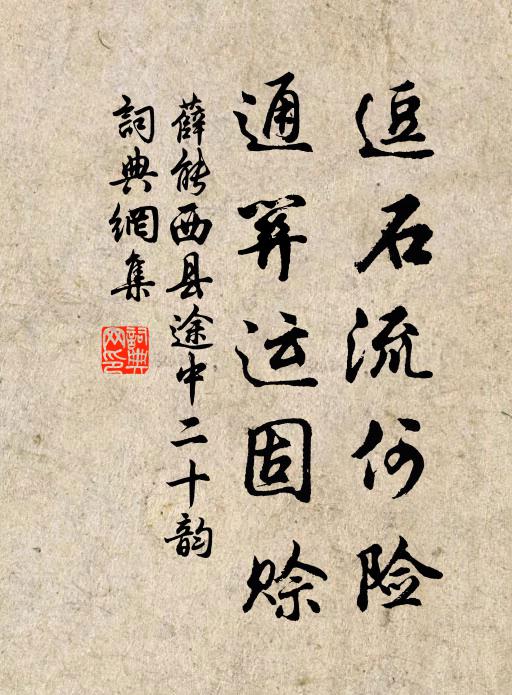 逗石流何险
通关运固赊
薛能西县途中二十韵
詞典網集
詞典網印